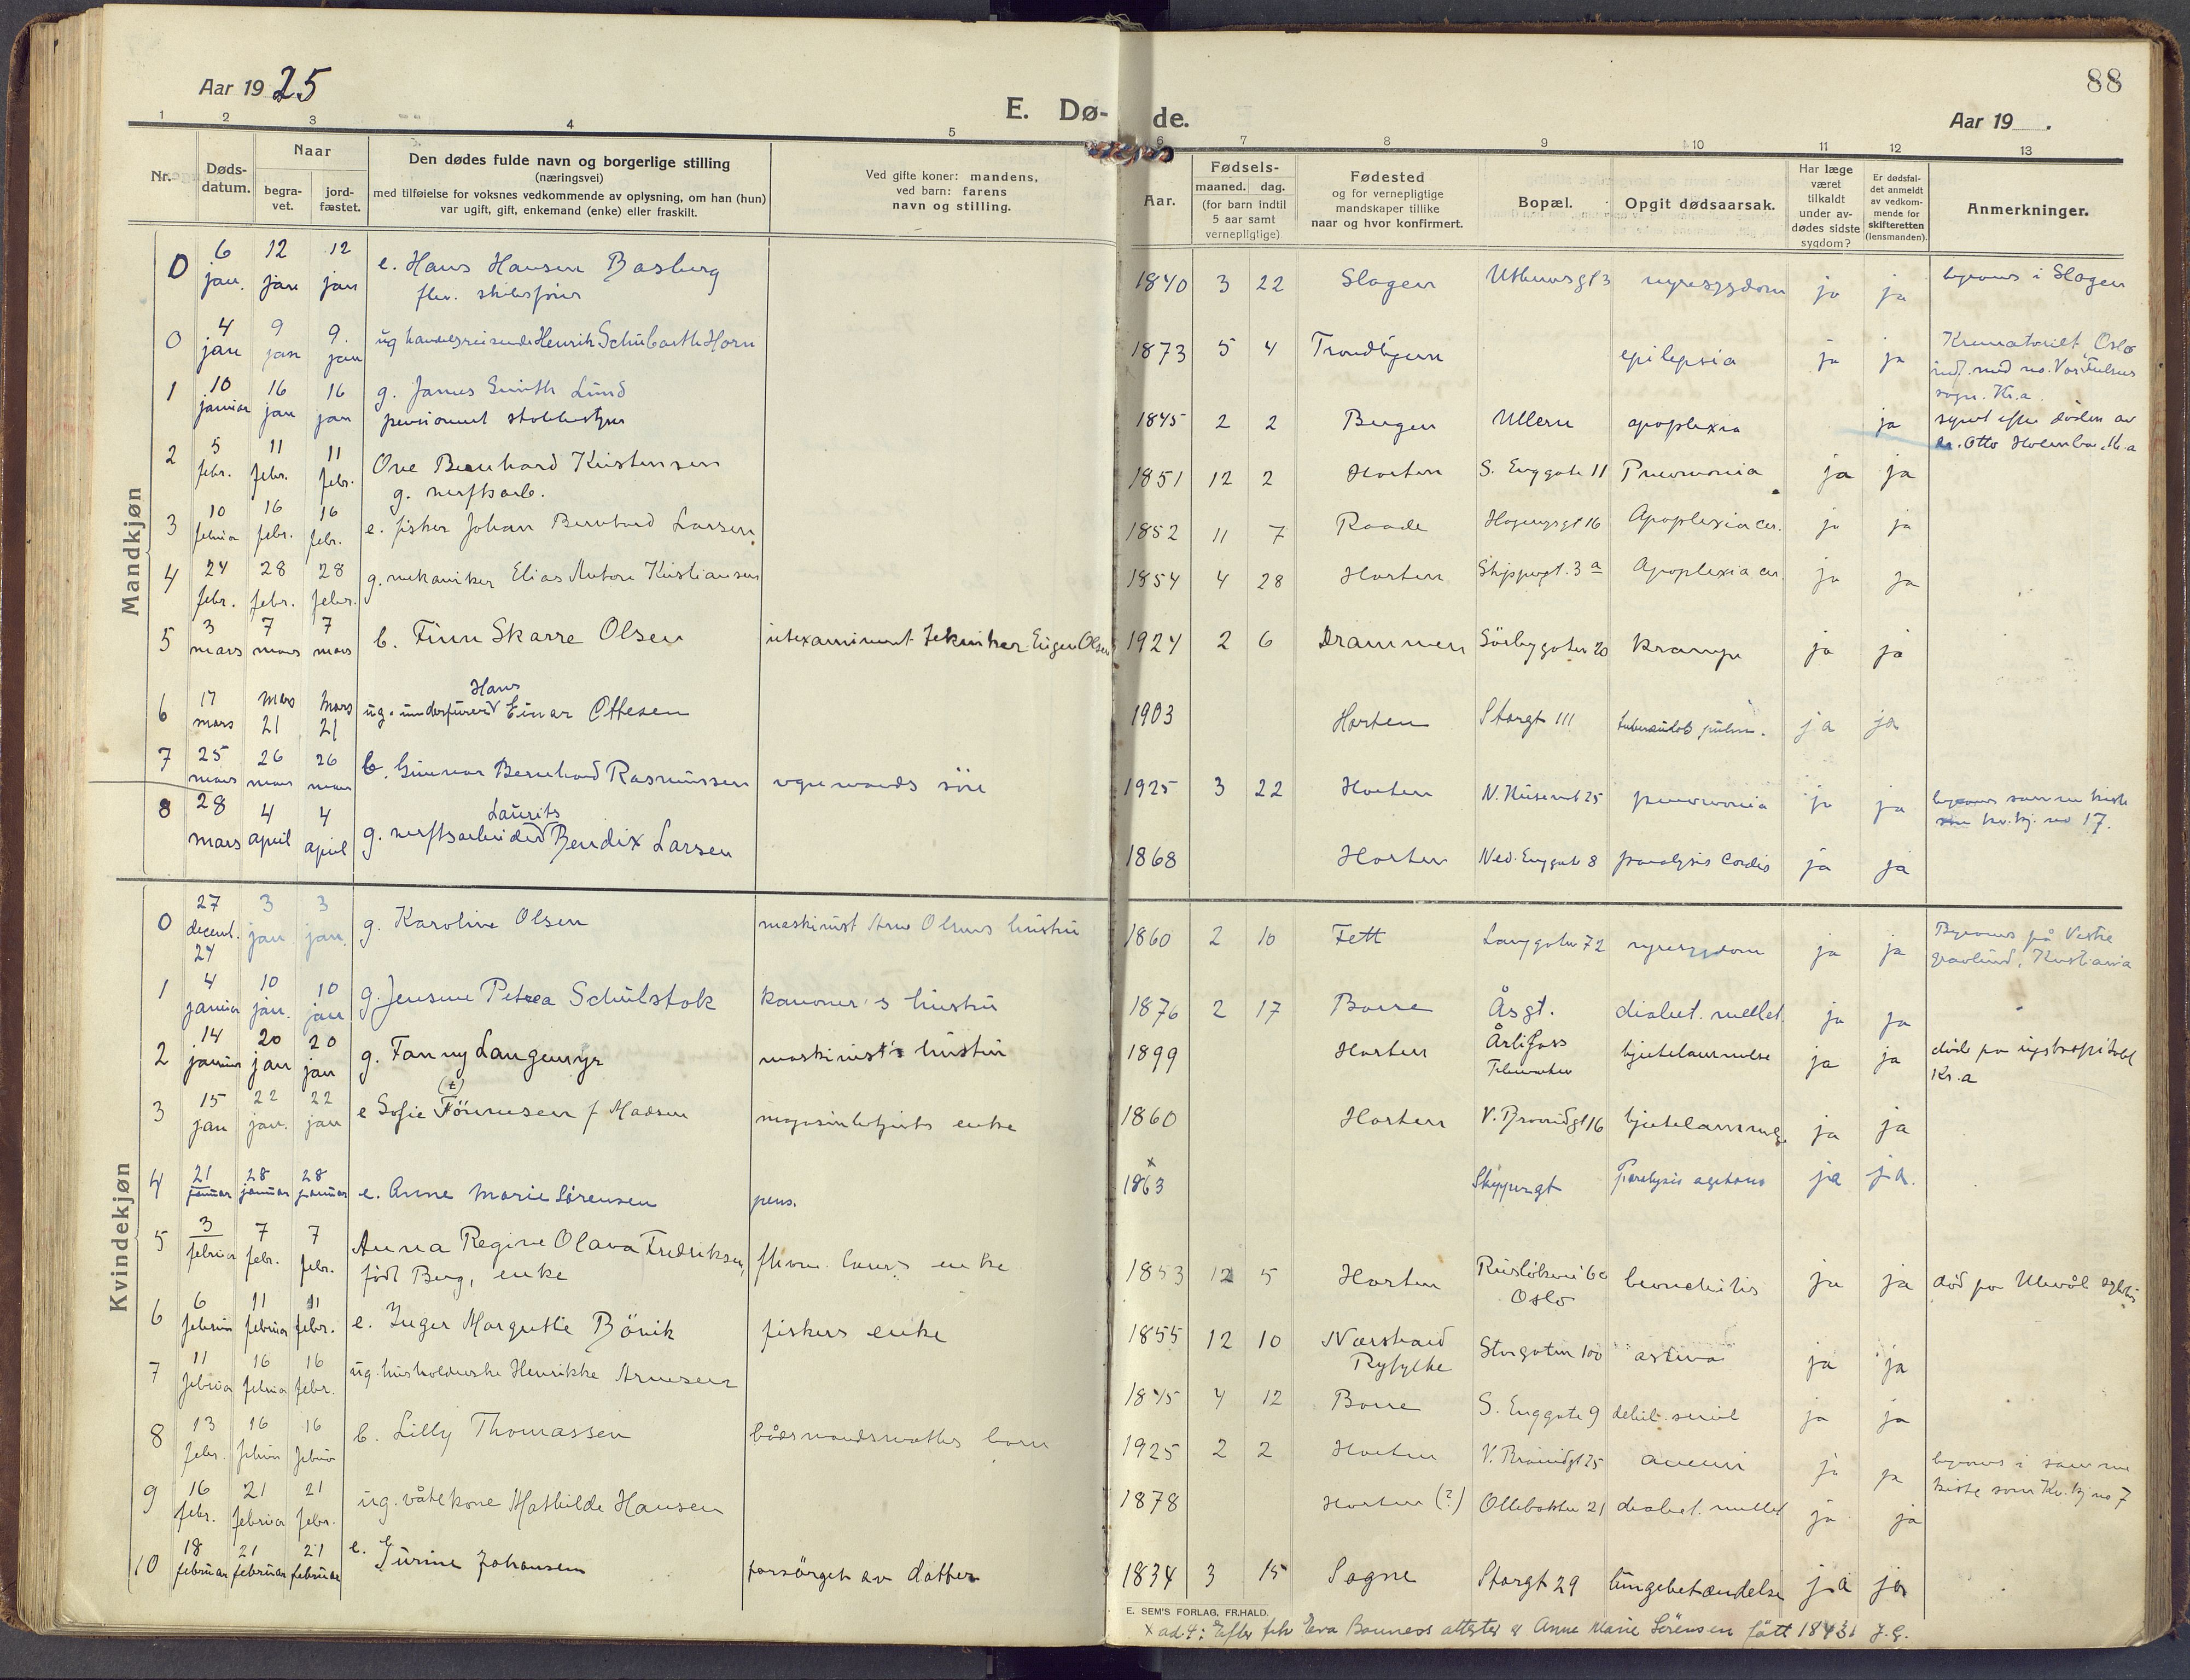 Aar 1925
88
E. Dø-de.
Aar 19 .
1 2 3 4 5 6 7 8 9 10 11 12 13
Nr.
Døds-
datum.
Naar
begra-
vet.
jord-
fæstet.
Den dødes fulde navn og borgerlige stilling
(næringsvei)
med tilføielse for voksnes vedkommende av oplysning, om han (hun)
var ugift, gift, enkemand (enke) eller fraskilt.
Ved gifte koner: mandens,
ved barn: farens
navn og stilling.
Aar.
Fødsels-
maaned. dag.
(for barn indtil
5 aar samt
vernepligtige)
Fødested
og for vernepligtige
mandskaper tillike
naar og hvor konfirmert.
Bopæl.
Opgit dødsaarsak.
Har læge
været
tilkaldt
under av-
dødes sidste
sygdom?
Er dødsfal-
det anmeldt
av vedkom-
mende for
skifteretten
(lensmanden).
Anmerkninger.
Mandkjøn
0 6 jan. 12 jan 12 jan e. Hans Hansen Basberg 1840 3 22 Slagen nyresygdom ja ja i Slagen
flv. skibsfører
0 4 jan 9 jan 9. jan ug handelsreisende Henrik Schübarth Horn 1873 5 4 Trondhjem epilepsia ja ja Krematoriet Oslo
1 10 januar 16 jan 16 jan g. James Smith Lund 1845 2 2 Bergen Ullern apoplexia ja
pensionert
2 5 febr. 11 febr. 11 febr. Ove Bernhard Kristensen 1851 12 2 Horten S. Enggate 11 Pneumonia ja ja
g. verftsarb.
3 10 februar 16 febr. 16 febr. e. fisker Johan Bernhard Larsen 1852 11 7 Raade Apoplexia cer. ja ja
4 24 febr. 28 febr. 28 febr. g. mekaniker Elias Anton Kristiansen 1854 4 28 Horten Skippergt. 3 a Apoplexia cer. ja ja
5 3 mars 7 mars 7 mars b. Finn Skarre Olsen utexaminert Tekniker Eugen Olsen 1924 2 6 Drammen 20 Krampe ja ja
6 17 mars mars 21 mars 21 ug. underfurer Hans Einar Ottesen 1903 Horten Storgt 111 tuberculos pulm. ja ja
7 25 mars 26 mars 26 mars b. Gunnar Bernhard Rasmussen vognmands søn 1925 3 22 Horten 25 pneumonia ja ja samme kiste
kv. kj. no 17.
8 28 mars 4 april 4 april g. verftsarbeider Laurits Bendix Larsen 1868 Horten Ned. Enggate 8 paralysis Cordis ja ja
Kvindekjøn
0 27 decemb. 24 3 jan 3 jan. g. Karoline Olsen maskinist Arne Olsens hustru 1860 2 10 Fett Langgaten 72 nyresygdom ja ja på Vestre
gravlund, Kristiania
1 4 januar 10 jan. 10 jan g. Jensine Petrea Schulstok kanoner's hustru 1876 2 17 Borre Åsgt. diabet. mellet. ja ja
2 14 januar 20 jan 20 jan g. Fanny Langemyr maskinist's hustru 1899 Horten Årlifoss hjertelammelse ja ja døde på rigshospitalet
Telemarken
Kr.a
3 15 jan 22 jan. 22 jan e Sofie Tönnesen f Madsen enke 1860 Horten 16 hjertelammelse ja ja
4 21 januar 28 januar 28 januar e. Anne Marie Sörensen pens. 1863 x Skippergt Paralysis agitans ja ja.
5 3 februar 7 febr. 7 febr. Anna Regine Olava Fredriksen, enke 1853 12 5 Horten bronchitis ja ja död på Ullevål
født Berg, enke
Oslo
6 6 februar 11 februar 11 febr. e. Inger Margrethe Börvik fiskers enke 1855 12 10 Nærstrand Storgaten 100 astma ja ja
Ryfylke
7 11 februar 16 februar 16 febr. ug. husholderske Henrikke Arnesen 1845 4 12 Borre S. Enggate 9 debil. senil ja ja
8 13 febr. 16 februar 16 februar b. Lilly Thomassen bådsmandsmatks barn 1925 2 2 Horten 25 ja ja i samme
kiste som Kv. kj no 7
9 16 febr. 21 februar 21 febr. ug. våtekone Mathilde Hansen 1878 Horten (?) Ollebakken 21 diabet. mellet ja ja
10 18 februar 21 februar 21 februar e. Jörine Johansen forsörget av datter 1834 3 15 Sogne Storgt 29 lungebetændelse ja ja
E. SEM'S FORLAG, FR.HALD.
x ad. 4: Efter frk Eva attester er Anne Marie Sörensen fött 1843. J. G.